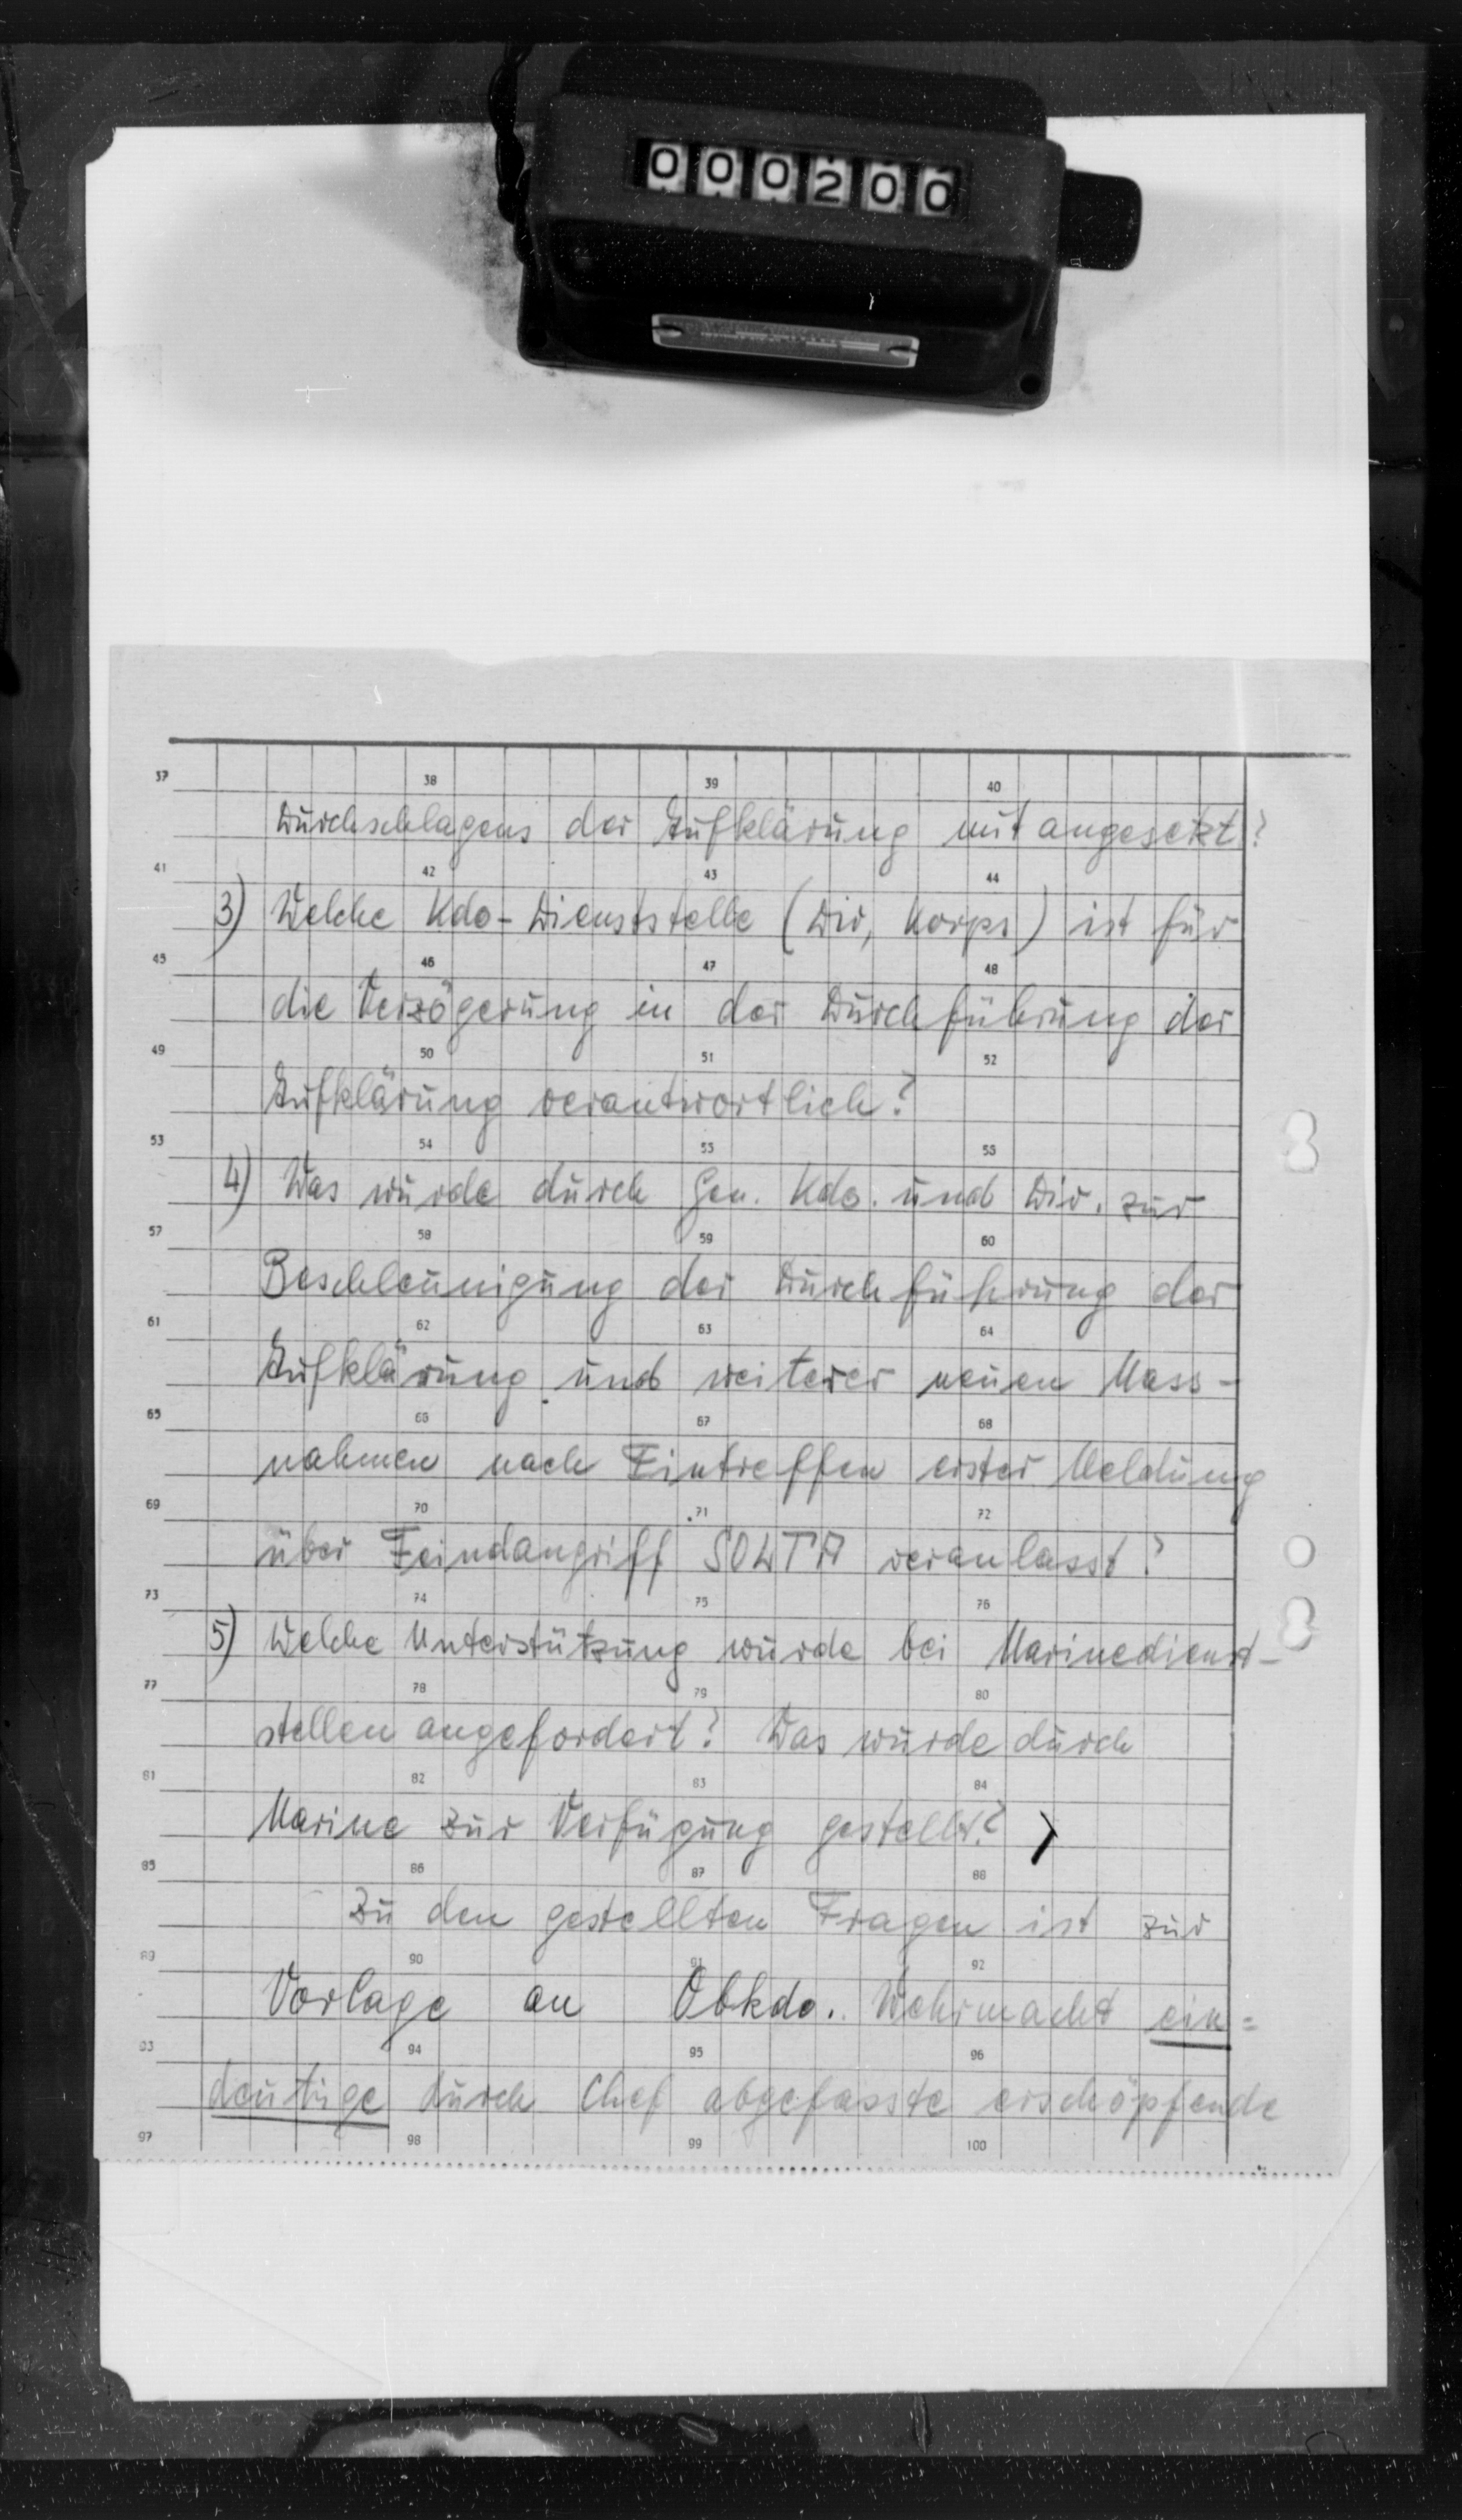 000200
37 38 39 40
Durchschlagens der Aufklärung mit angesetzt?
41 42 43 44
3) Welche Kdo-Dienststelle (Div, Korps) ist für
45 46 47 48
die Verzögerung in der Durchführung der
49 50 51 52
Aufklärung verantwortlich?
53 54 55 55
4) Was wurde durch Gen. Kdo. und Div. zur
57 58 59 60
Beschleunigung der Durchführung der
61 62 63 64
Aufklärung und weiterer neuen Mass-
65 66 67 68
nahmen nach Eintreffen erster Meldung
69 70 71 72
über Feindangriff SOLTA veranlasst?
73 74 75 76
5) Welche Unterstützung wurde bei Marinedienst-
77 78 79 80
stellen angefordert? Was wurde durch
81 82 83 84
Marine zur Verfügung gestellt?
85 86 87 88
Zu den gestellten Fragen ist zur
89 90 91 92
Vorlage an Obkdo. Wehrmacht ein=
93 94 95 96
deutige durch Chef abgefasste erschöpfende
97 98 99 100